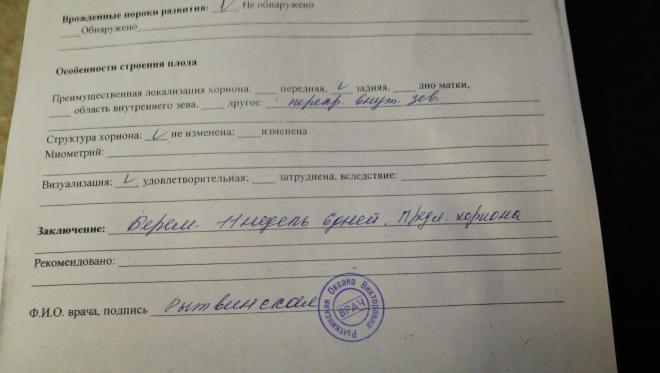 Врожденные пороки развития: V Не обнаружено
Обнаружено
Особенности строения плода
Преимущественная локализация хориона: передняя, V задняя, дно матки,
область внутреннего зева, другое: перекр. внут. зев.
Структура хориона: V не изменена; изменена
Миометрий:
Визуализация: V удовлетворительная; затруднена, вследствие:
Заключение: Берем. 11 недель 6 дней. Предл. хориона
Рекомендовано:
Ф.И.О. врача, подпись Рытвинская
Рытвинская Оксана Викторовна
ВРАЧ